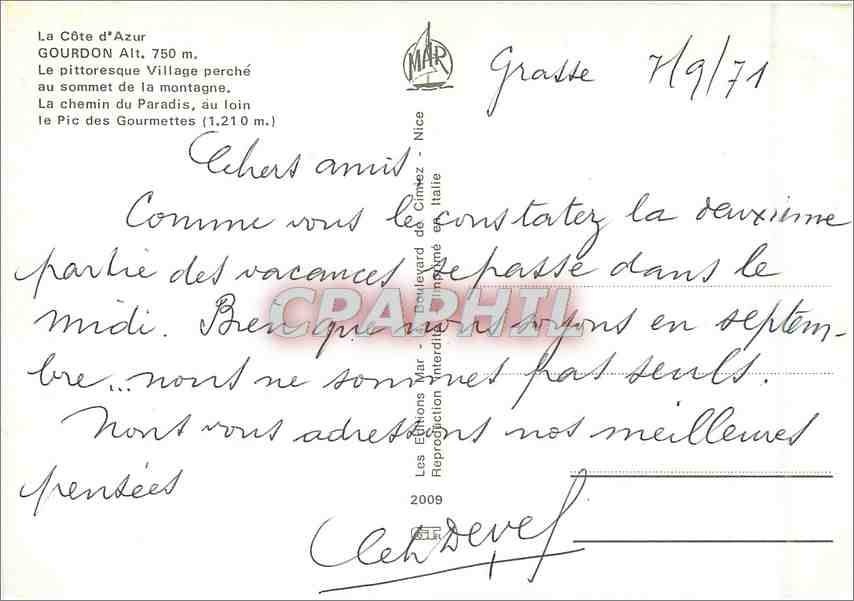 La Côte d'Azur
GOURDON Alt. 750 m.
Le pittoresque Village perché
au sommet de la montagne.
La chemin du Paradis, au loin
le Pic des Gourmettes (1.210 m.)
MAR
Grasse 7/9/71
Chers amis
Comme vous le constatez la deuxieme
partie des vacances se passe dans le
midi. Bien que nous soyons en septem-
bre... nous ne sommes pas seuls.
Nous vous adressons nos meilleures
pensées
Les Editions Mar - Boulevard de Cimiez - Nice
Reproduction Interdite - Imprimé en Italie
CPAPHIL
2009